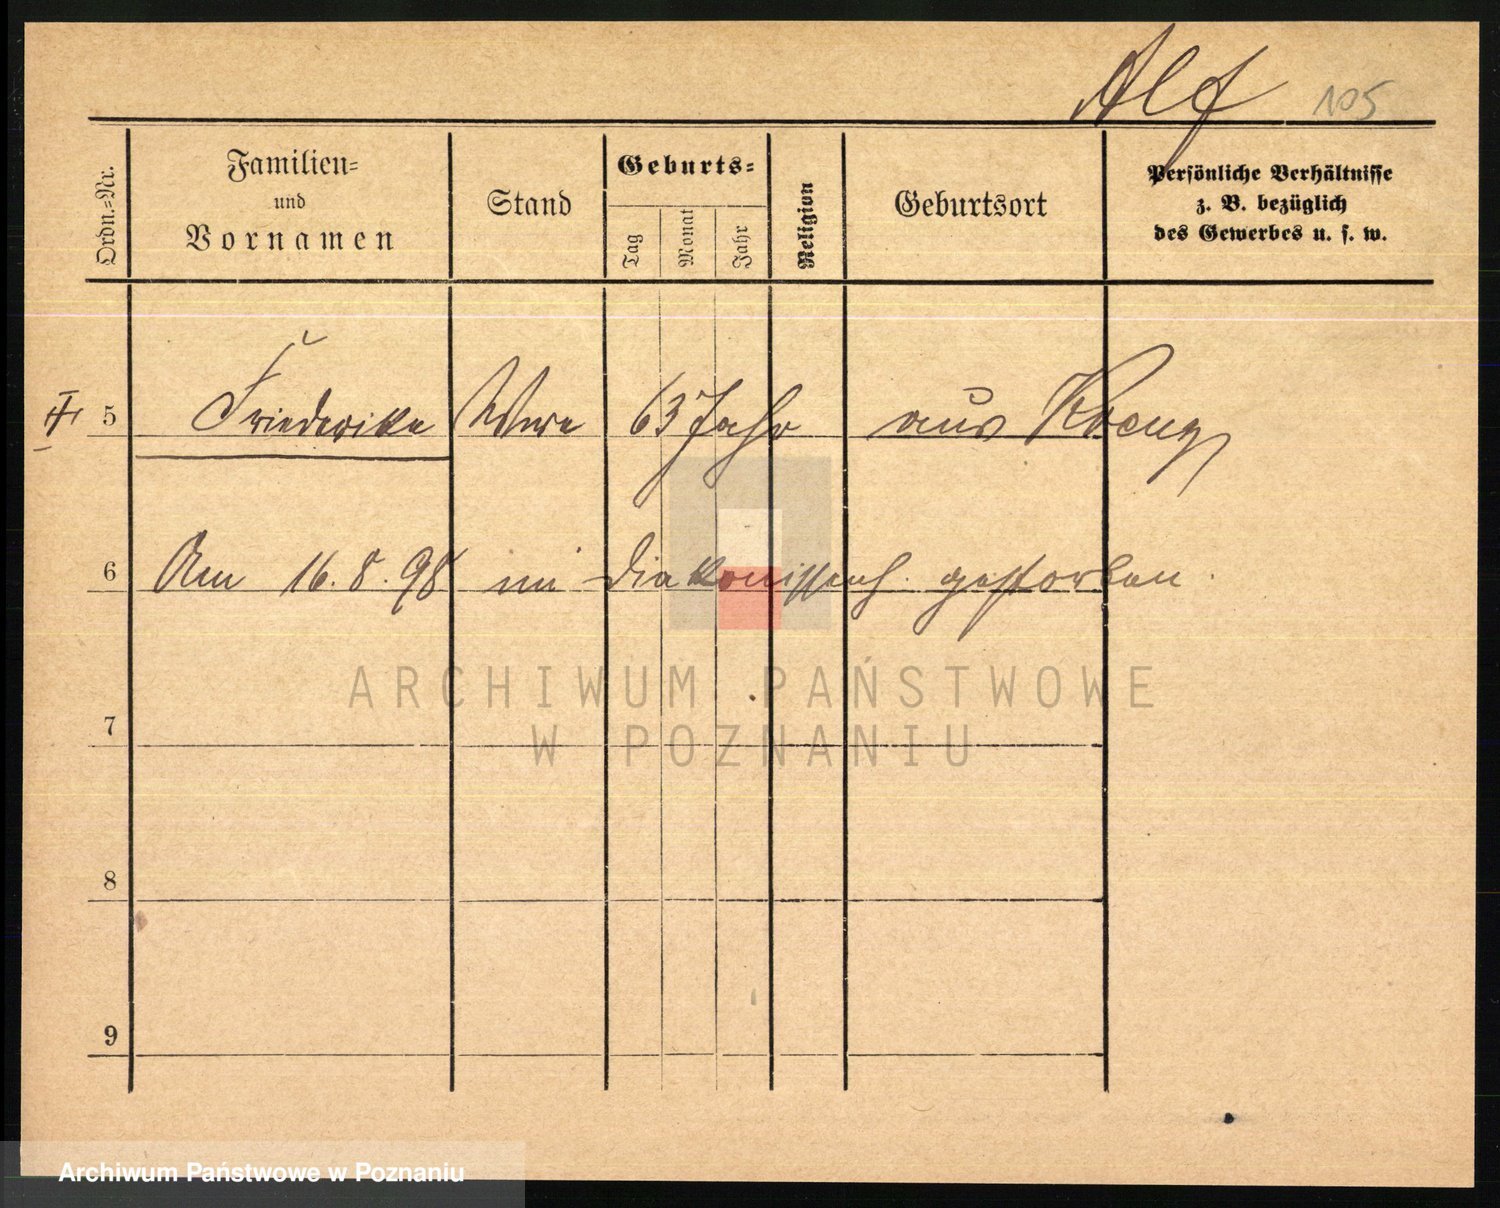 Alf 105
Ordn.=Nr.
Familien=
und
Vornamen
Stand
Geburts=
Tag
Monat
Jahr
Religion
Geburtsort
Persönliche Verhältnisse
z. B. bezüglich
des Gewerbes u. s. w.
5 Friederike Wwe 63 Jahr aus Kreuz
6 Am 16.8.98 im Diakonissenh. gestorben.
7
8
9
ARCHIWUM PAŃSTWOWE
W POZNANIU
Archiwum Państwowe w Poznaniu